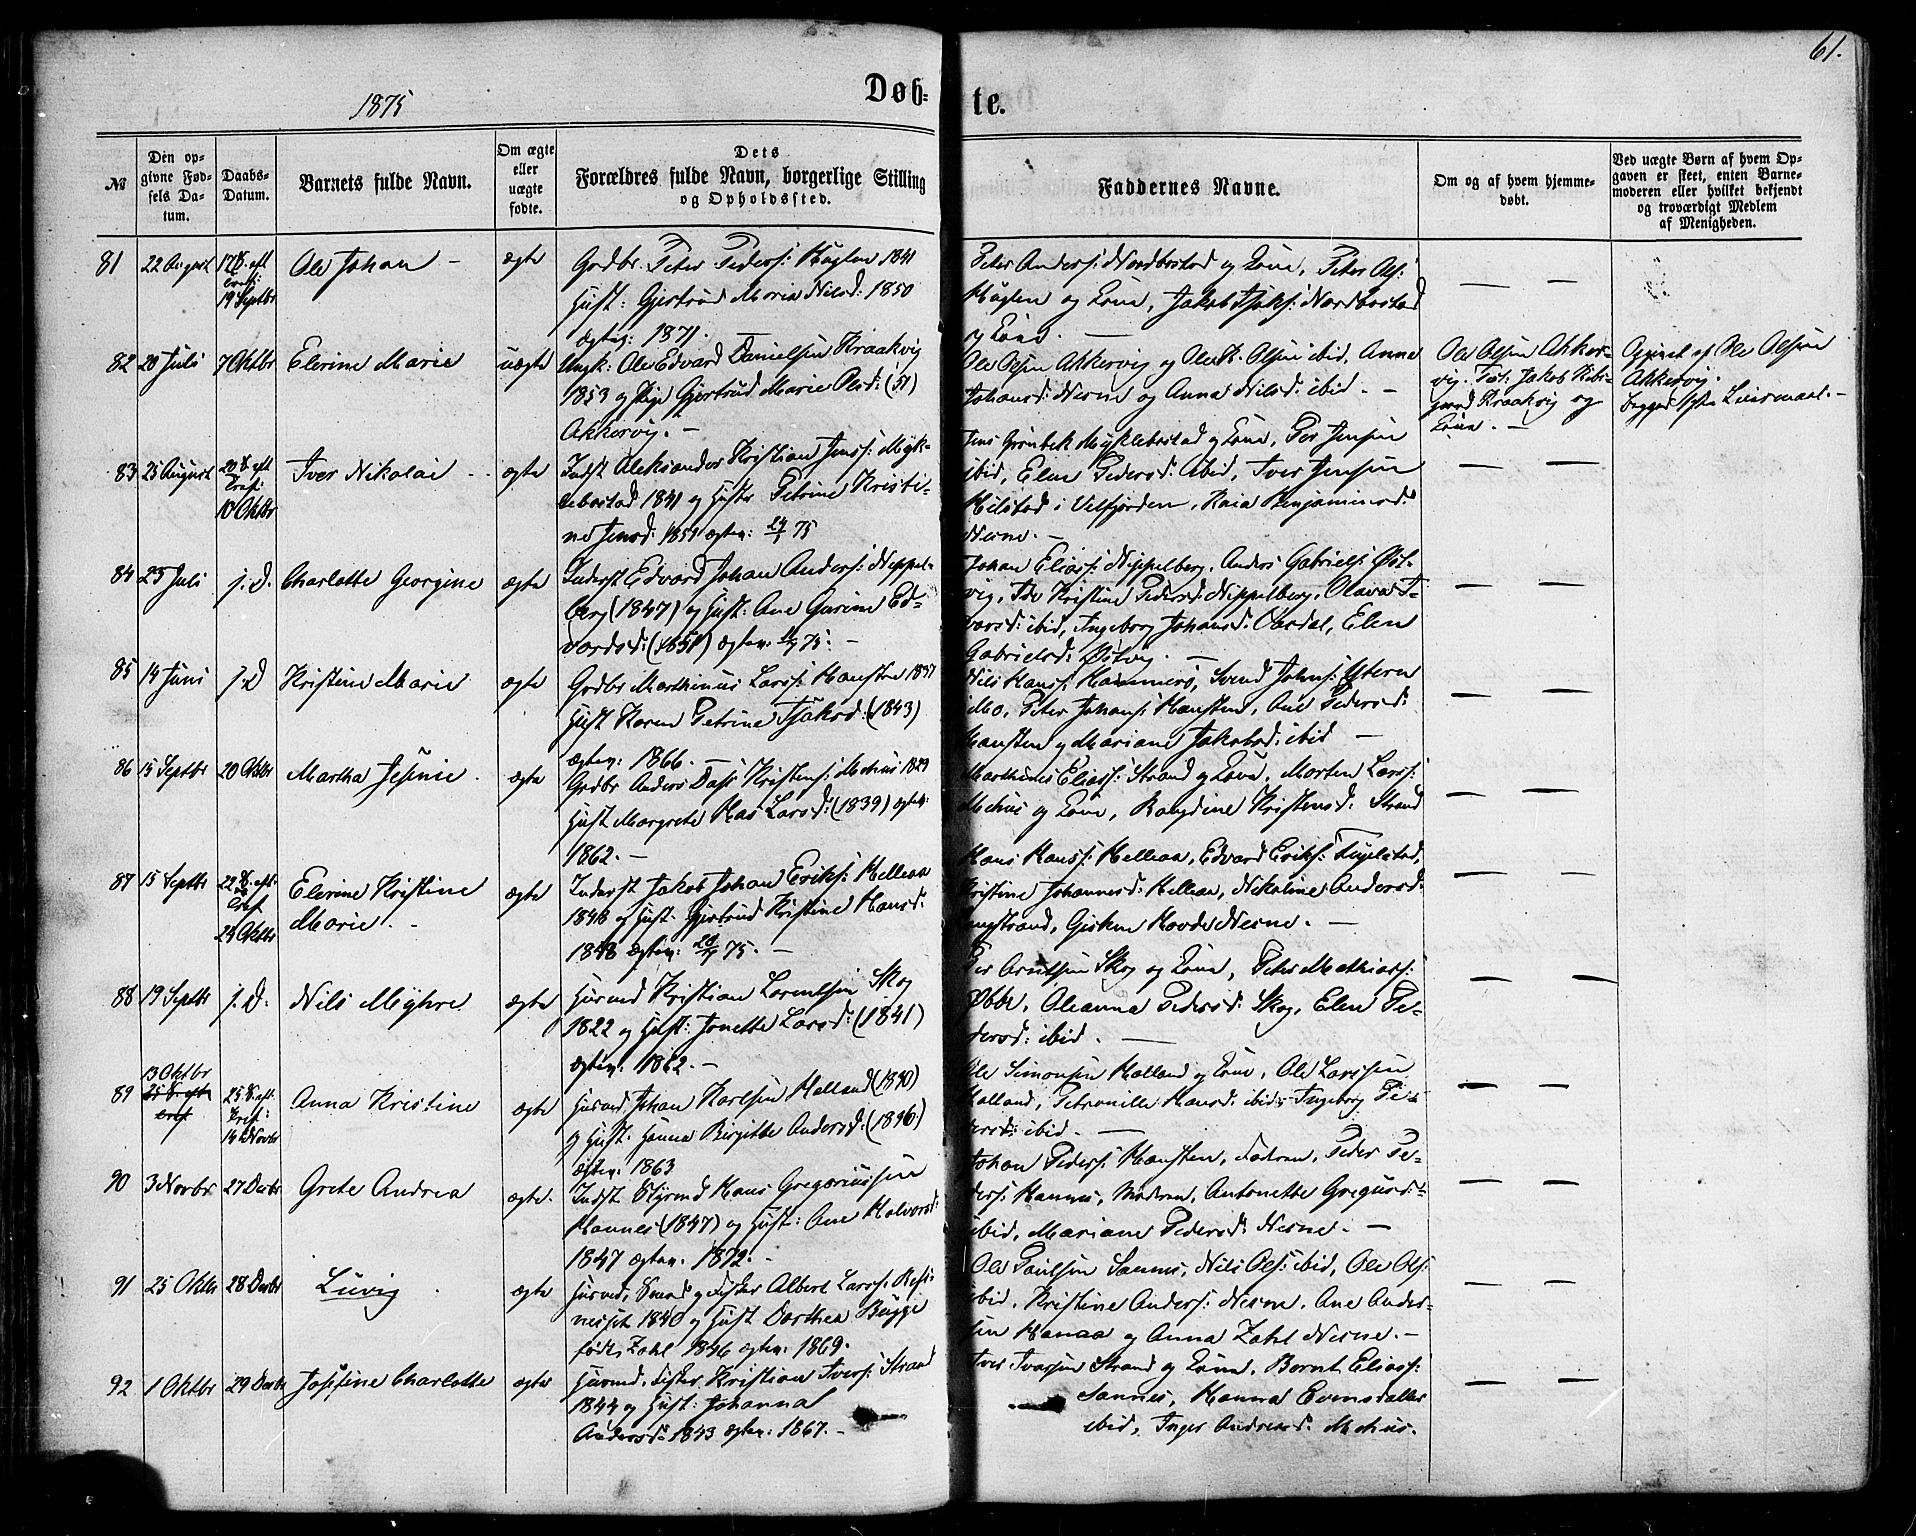 61.
1875
Døb-
te.
№
Den op-
givne Fød-
sels Da-
tum.
Daabs-
Datum.
Barnets fulde Navn.
Om ægte
eller
uægte
fødte.
Dets
Forældres fulde Navn, borgerlige Stilling
og Opholdssted.
Faddernes Navne.
Om og af hvem hjemme-
døbt.
Ved uægte Børn af hvem Op-
gaven er skeet, enten Barne-
moderen eller hvilket bekjendt
og troværdigt Medlem
af Menigheden.
81 22 August 17 S. eft Tref: 19 Septbr Ole Johan - ægte
Grdbr. Peter Peders: Haglen 1841
Hust: Gjertrud Maria Nilsd: 1850
ægtev: 1871. -
Peter Anders: Nordbostad og Kone, Peter Ols:
og Kone, Jakob Nordbostad
og Kone. -
82 20 Juli 7 Oktbr Elerine Marie uægte
Ungk: Ole Edvard Danielsen Kraakvig
1853 og Pige Gjertrud Marie Olsd: (51)
Akkervig. -
Ole Olsen Akkervig og Ole Olsen ibid, Anne
Johansd: Nesne og Anna Nilsd: ibid. -
Ole Olsen Akker-
vig. Test: Jakob
Kraakvig og
Kone. -
Opgivet af Ole Olsen
Akkervig.
begges 1ste Leiermaal. -
83 25 August 20 S. eft Tref: 10 Oktbr Iver Nikolai - ægte
Indst Aleksander Kristian Jenss: Myk-
lebostad 1841 og Hustr Petrine Kristi-
ne Jensd: 1851 ægtev: 75
Jens Grønbek Myklebostad og Kone, Per Jensen
ibid, Elen Pedersd: ibid, Iver Jensen
Hilstad i Velfjorden, Kaia Benjaminsd:
Nesne. -
84 25 Juli j. D. Charlotte Georgine ægte
Inderst Edvard Johan Anders: Neppel-
berg (1847) og Hust: Ane Gurine Ed-
vardsd: (1851) ægtev: 75. -
Johan Elias: Nippelberg, Anders Gabriels: Øst-
vig, Ida Kristine Pedersd: Nippelberg, Olava
ibid, Ingeborg Johansd: Oksdal, Elen
Gabrielsd: Østvig. -
85 14 Juni j. D Kristine Marie ægte
Grdbr Marthinus Larss: Hansten 1837
Hust Karen Petrine (1843)
ægtev: 1866. -
Nils Hanss: Hammerø, Svend Johns: Ytern
Mo, Peter Johans: Hansten, Ane Pedersd:
Hansten og Mariane Jakobsd: ibid -
86 15 Septbr 20 Oktbr Martha Jesine. ægte
Grdbr Anders Dass Kristens: Mehus 1829
Hust Margrete Kas Larsd: (1839) ægtev:
1862. -
Marthines Elias: Strand og Kone, Morten Larss:
Mehus og Kone, Kristensd: Strand
87 15 Septbr 22 S. eft. Tref 24 Oktbr Elerine Kristine
Marie. - ægte
Inderst Jakob Johan Eriks: Hellean
1848 og Hust: Gjertrud Kristine Hansd:
1848 ægtev: 75. -
Hans Hanss: Hellean, Edvard Eriks: Tugelstad,
Kristine Johannesd: Hellean, Nikoline Andersd:
Gisken Hovde Nesne. -
88 19 Septbr j. D. Nils Myhre ægte
Husmd Kristian Lorentsen Skog
1822 og Hust: Jonette Larsd: (1841)
ægtev: 1862. -
Per Arntsen Skog og Kone, Peter Mathias:
Øbbe, Oleanna Pedersd: Skog, Elen Pe-
dersd: ibid. -
89 13 Oktbr 25 S. eft Tref: 14 Novbr Anna Kristine ægte
Husmd, Johan Karlsen Holland (1840)
og Hust: Hanna Birgitte Andersd: (1846)
ægtev: 1863
Ole Simonsen Holland og Kone, Ole Larssen
Holland, Petronille Hansd: ibid, Ingeborg Pe-
dersd: ibid. -
90 3 Novbr 27 Decbr Grete Andrea ægte.
Indst Styrmd Hans Gregoriussen
Hannes (1847) og Hust: Ane Halvorsd:
1847 ægtev: 1872. -
Johan Peders: Hansten, Fadren, Peder Pe-
ders: Hannes, Modren, Antonette Gregusd:
ibid, Mariane Pedersd: Nesne. -
91 25 Oktbr 28 Decbr Luvig. ægte
Husmd, Smed og Fisker Albert Larss:
1840 og Hust Dorthea Bugge
født Zahl 1846 ægtev: 1869. -
Ole Paulsen Sannes, Nils Ols: ibid, Ole Ols:
ibid, Kristine Anders: Nesne, Ane Ander-
sen Hanaa og Anna Zahl Nesne. -
92 1 Oktbr 29 Decbr Josefine Charlotte ægte
Husmd, Fisker, Kristian Ivers: Strand
1844 og Hust: Johanna
Andersd: 1843 ægtev: 1867. -
Iver Ivarsen Strand og Kone, Bernt Elias:
Sannes, Hanna Evensdatter
ibid, Inger Andreasd: Mehus.